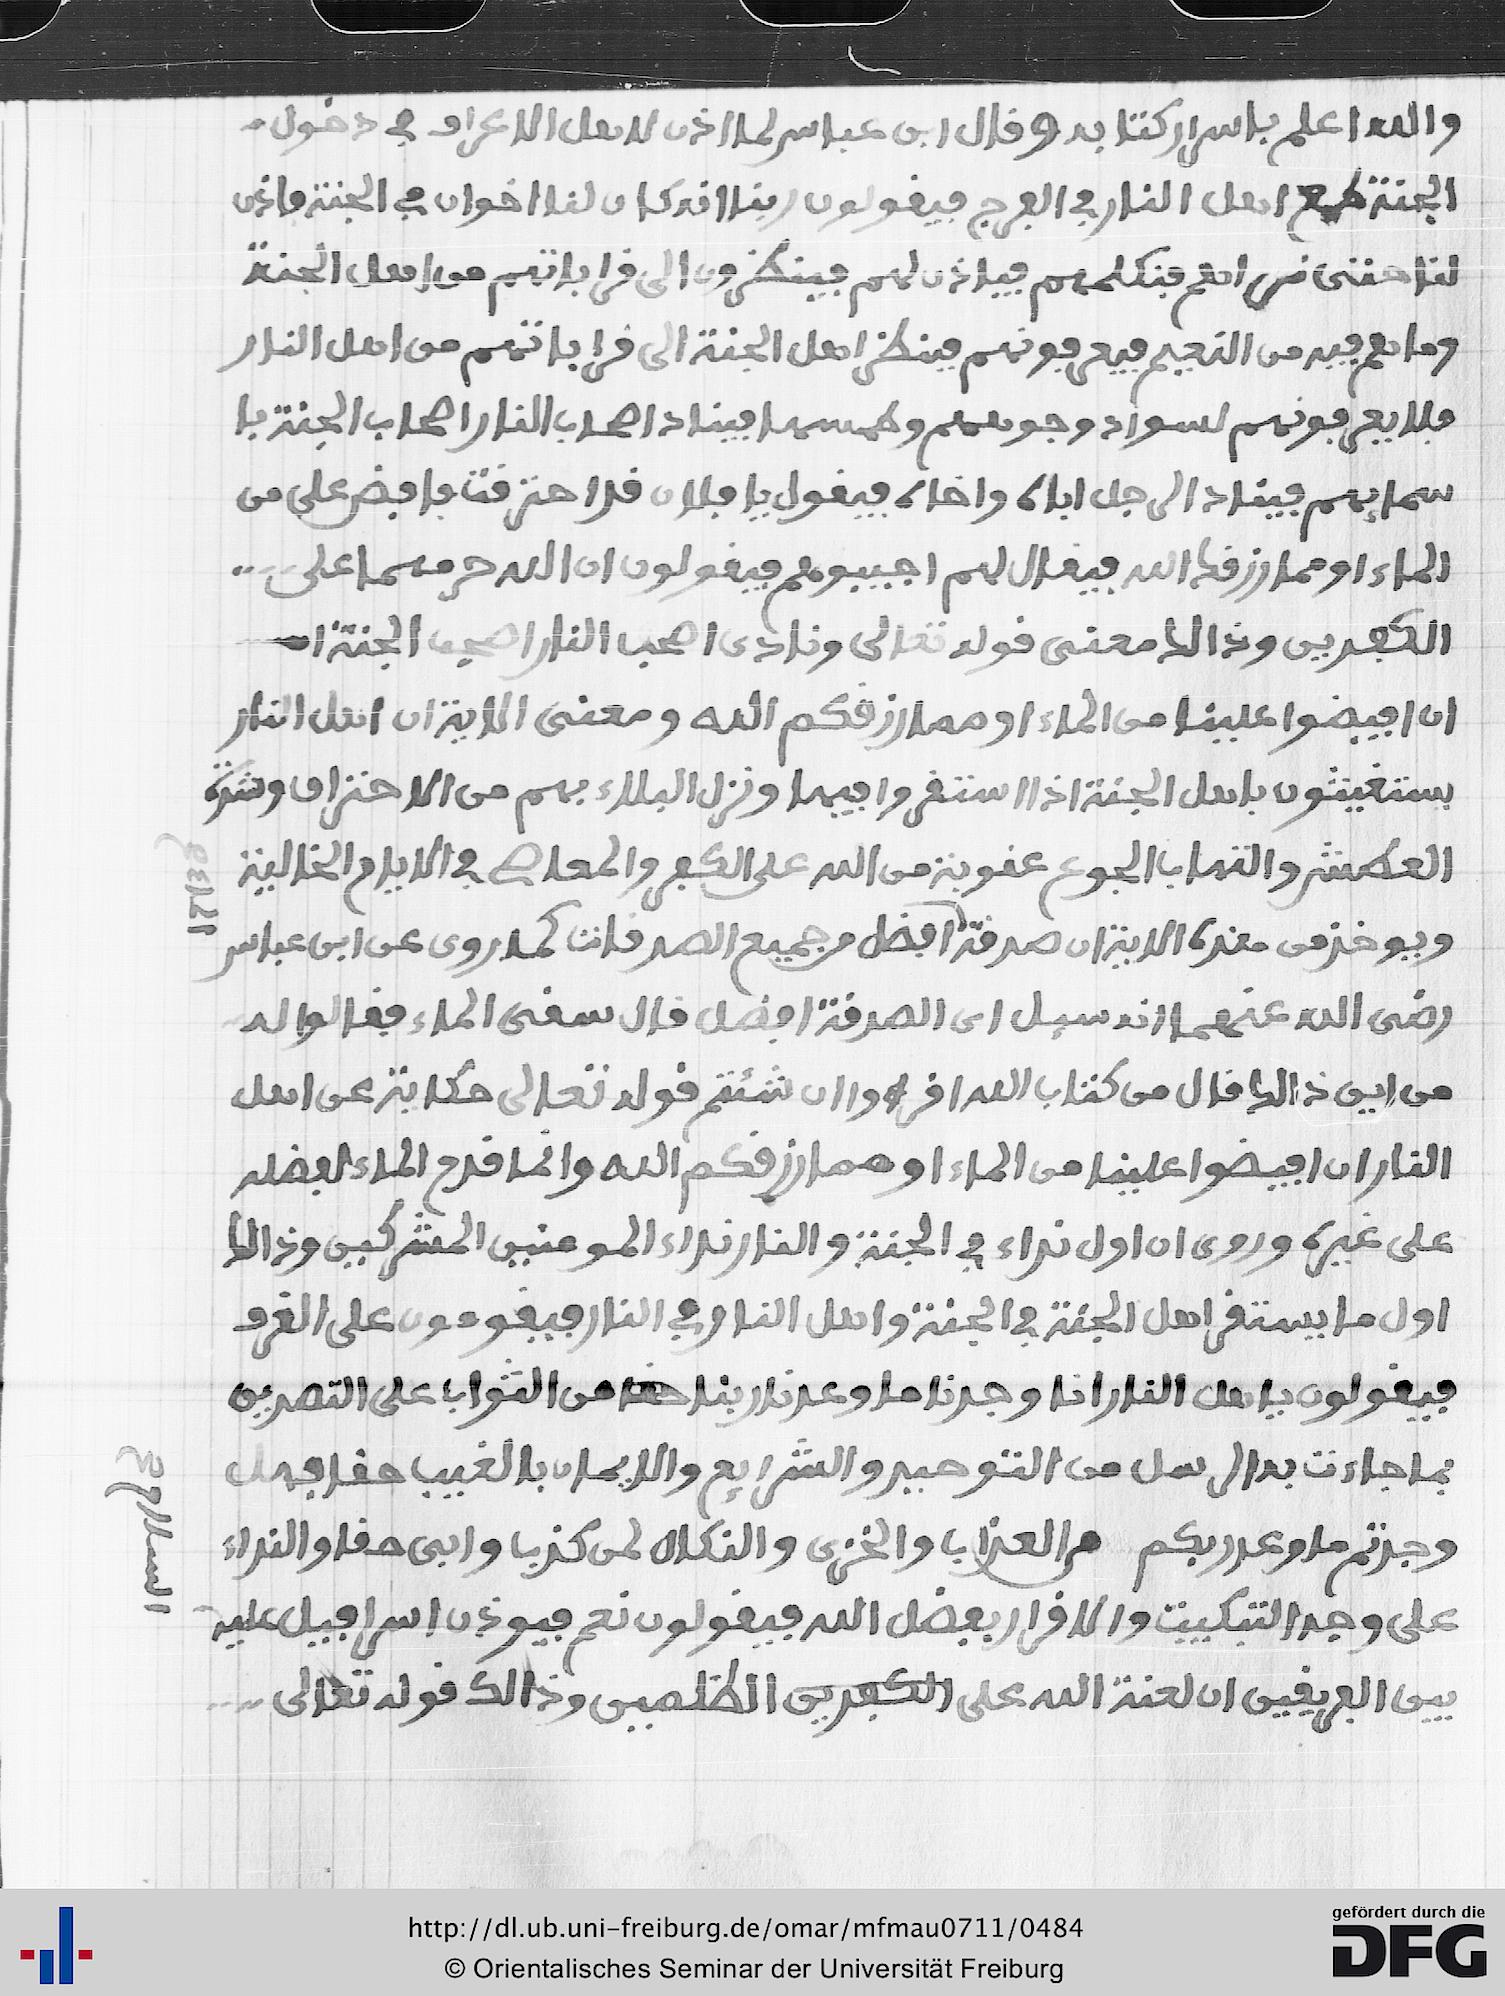 والله اعلم باسرار كتابه وقال ابن عباس لما اذن لاهل الاعراف في دخول
الجنة طمع اهل النار في الفرج فيقولون ربنا انه كان لنا اخوان في الجنة فاذن
لنا حتى نراهم فنكلمهم فياذن لهم فينظرون الى قراباتهم من اهل الجنة
وما هم فيه من النعيم فيعرفونهم فينظر اهل الجنة الى قراباتهم من اهل النار
فلا يعرفونهم لسواد وجوههم وطمسها فيناد اصحاب النار اصحاب الجنة با
سمايهم فيناد الرجل اباه واخاه فيقول يا فلان قد احترقت فافيض على من
الماء او مما رزقك الله فيقال لهم اجيبوهم فيقولون ان الله حرمهما على
الكفرين وذالك معنى قوله تعالى ونادى اصحب النار اصحب الجنة
ان افيضوا علينا من الماء او مما رزقكم الله ومعنى الاية ان اهل النار
يستغيثون باهل الجنة اذا استقروا فيها ونزل البلاء بهم من الاحتراق وشدة
العطش والتهاب الجوع عقوبة من الله على الكفر والمعاصي في الايام الخالية
ويوخذ من هذه الاية ان صدقة افضل من جميع الصدقات كما روى عن ابن عباس
رضى الله عنهما انه سيل اى الصدقة افضل قال سقى الماء فقالوا له
من اين ذالك قال من كتاب الله اقرءوا ان شئتم قوله تعالى حكاية عن اهل
النار ان افيضوا علينا من الماء او مما رزقكم الله وانما قدم الماء لفضله
على غيره وروى ان اول نداء في الجنة والنار نداء المومنين المشركين وذالك
اول ما يستقر اهل الجنة في الجنة واهل النار في النار فيقومون على الغرف
فيقولون يا اهل النار انا وجدنا ما وعدنا ربنا حقا من الثواب على التصديق
بما جاءت به الرسل من التوحيد والشرايع والايمان بالغيب حقا فهل
وجدتم ما وعد ربكم من العذاب والخزى والنكال لمن كذب وابى حقا والنداء
على وجه التبكيت والاقرار بفضل الله فيقولون نعم فيوذن اسرافيل عليه
بين الفريقين ان لعنة الله على الكفرين الظلمين وذالك قوله تعالى
الماء
السلام
http://dl.ub.uni-freiburg.de/omar/mfmau0711/0484
© Orientalisches Seminar der Universität Freiburg
gefördert durch die
DFG